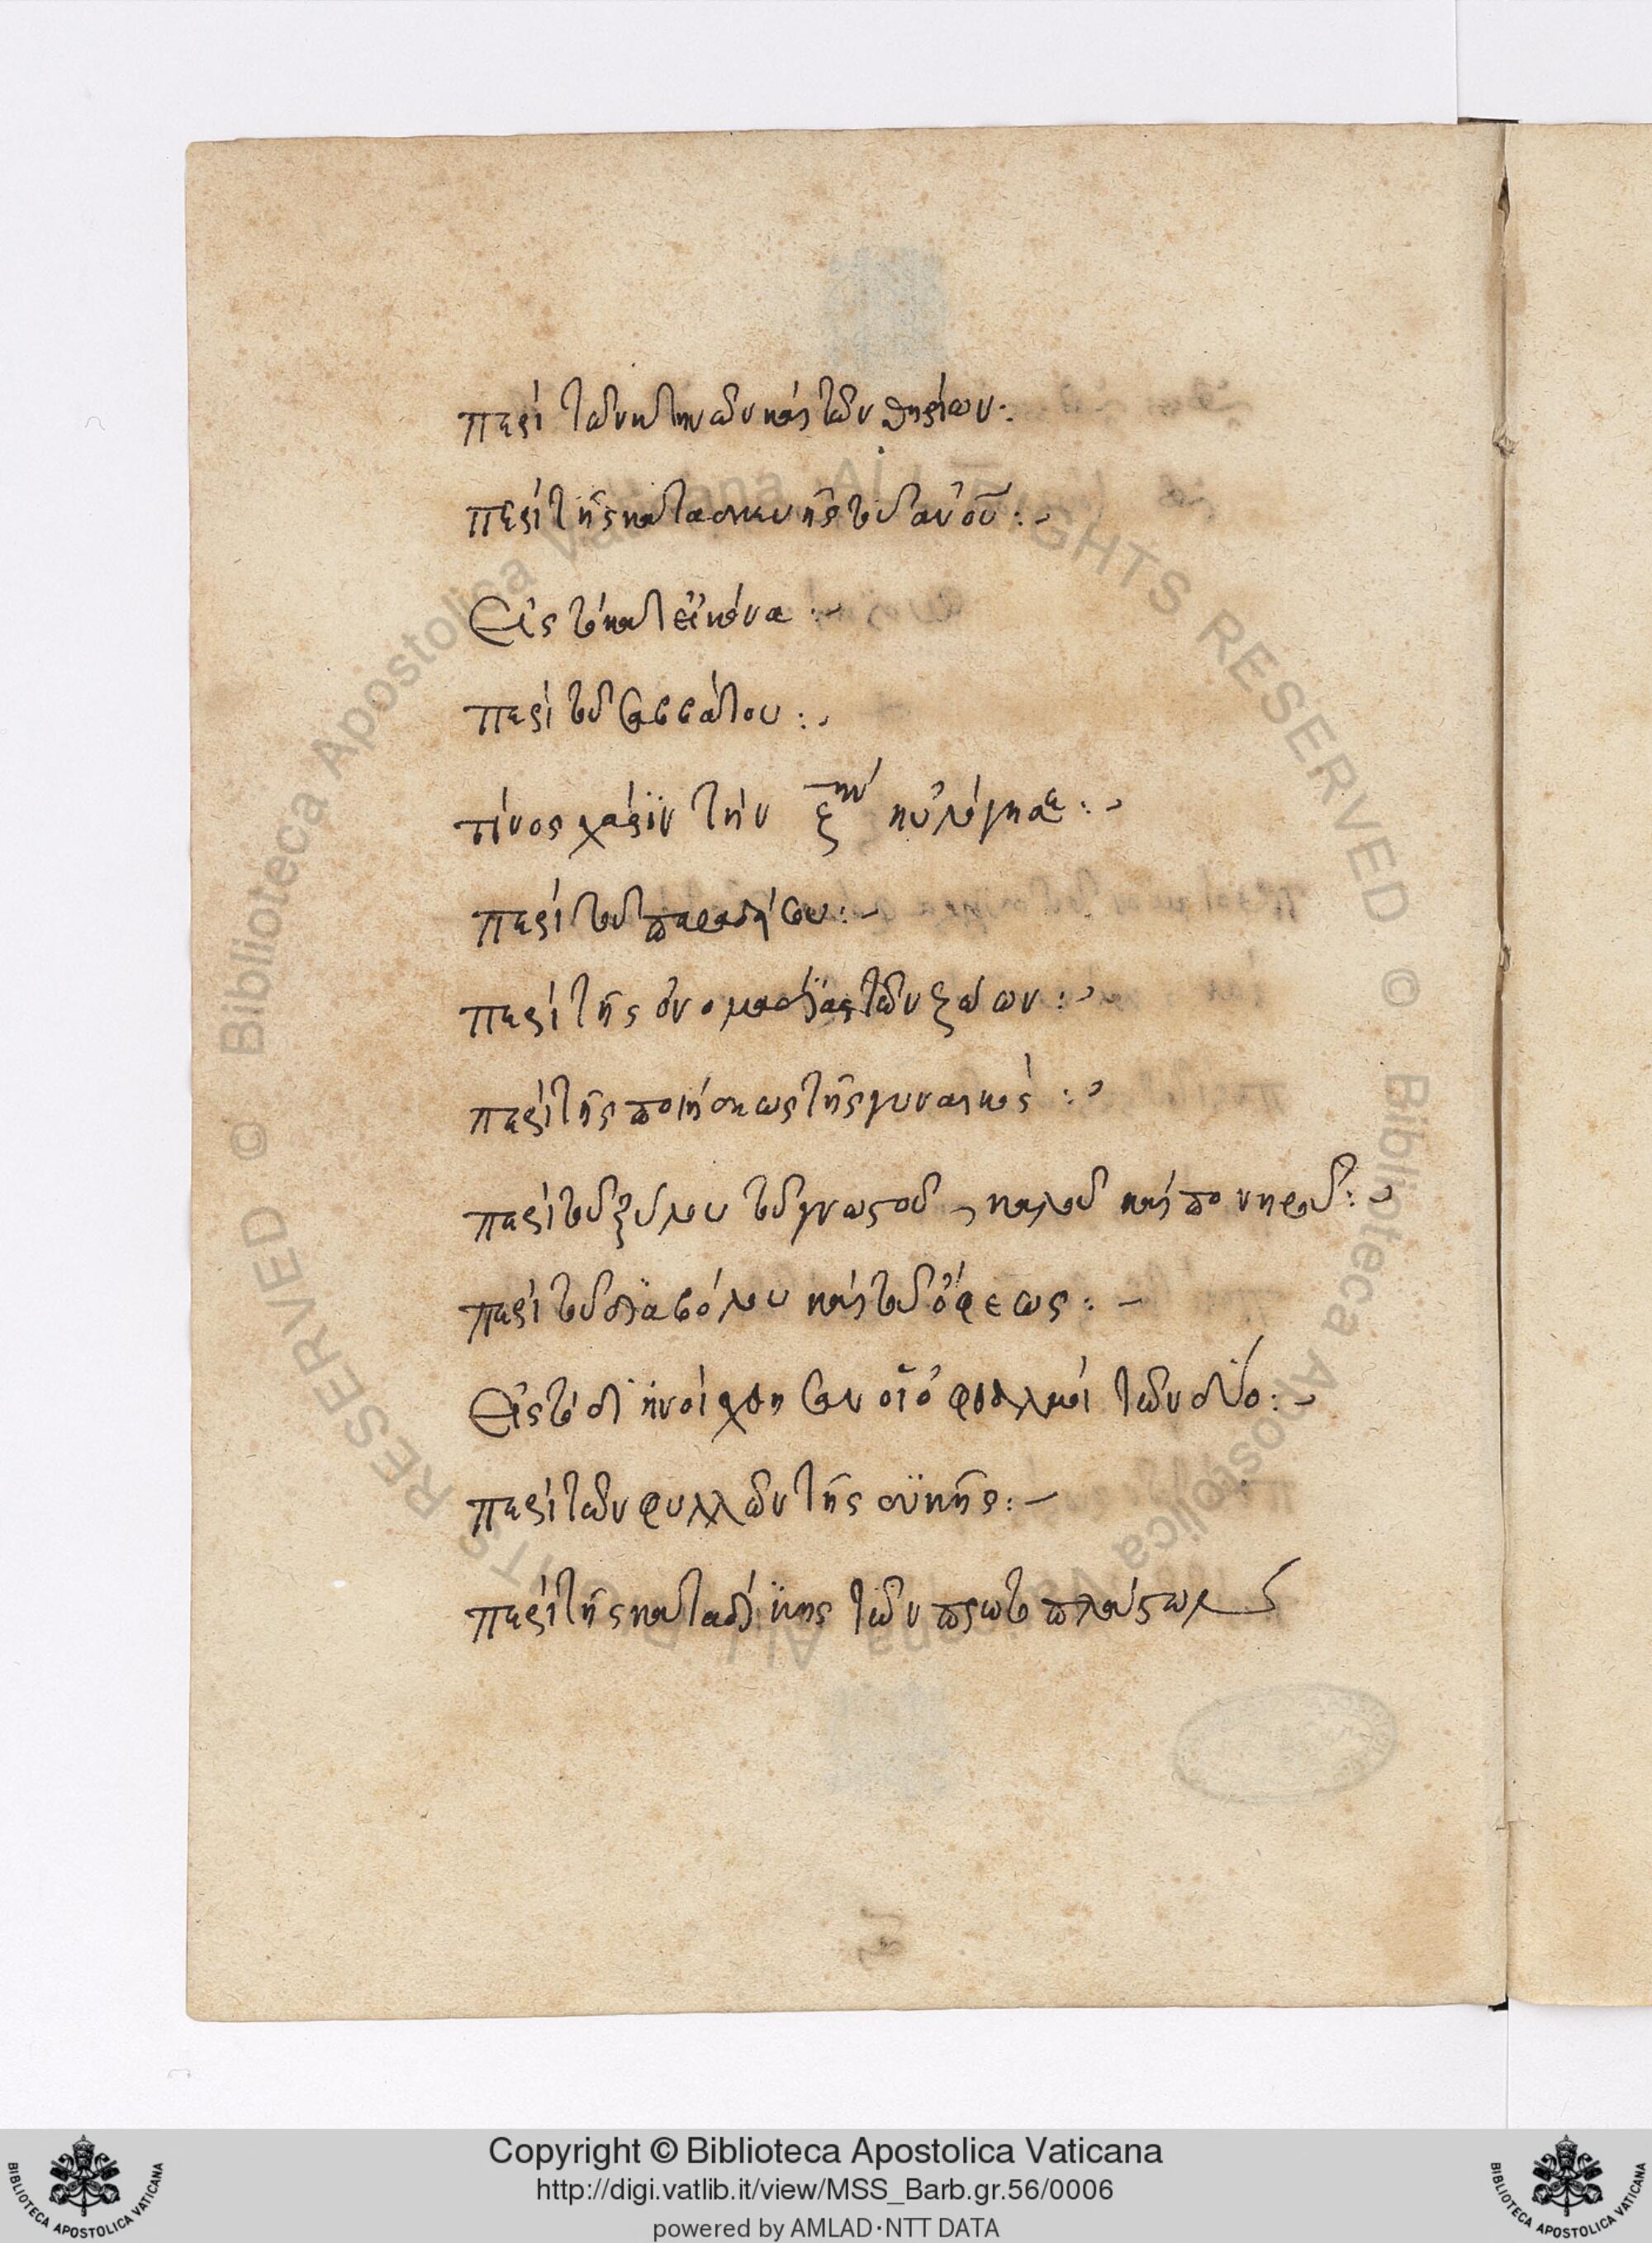 περὶ τῶν κτηνῶν καὶ τῶν θηρίων:
περὶ τῆς κατασκευῆς τοῦ ἀνοῦ:~
Εἰς τὸ κατ εἰκόνα:~
περὶ τοῦ σαββάτου:~
τίνος χάριν τὴν ζην ηὐλόγησε:~
περὶ τοῦ παραδείσου:~
περὶ τῆς ὀνομασίας τῶν ζώων:~
περὶ τῆς ποιήσεως τῆς γυναικός:~
περὶ τοῦ ξύλου τοῦ γνωστοῦ, καλοῦ καὶ πονηροῦ:~
περὶ τοῦ διαβόλου καὶ τοῦ ὄφεως:~
Εἰς τὸ διηνοίχθησαν οἱ ὀφθαλμοὶ τῶν δύο:~
περὶ τῶν φύλλων τῆς συκῆς:~
περὶ τῆς καταδίκης τῶν πρωτοπλάστων
Copyright © Biblioteca Apostolica Vaticana
http://digi.vatlib.it/view/MSS_Barb.gr.56/0006
powered by AMLAD·NTT DATA
© Biblioteca Apostolica Vaticana ALL RIGHTS RESERVED
© Biblioteca Apostolica Vaticana ALL RIGHTS RESERVED
BIBLIOTECA APOSTOLICA VATICANA
BIBLIOTECA APOSTOLICA VATICANA